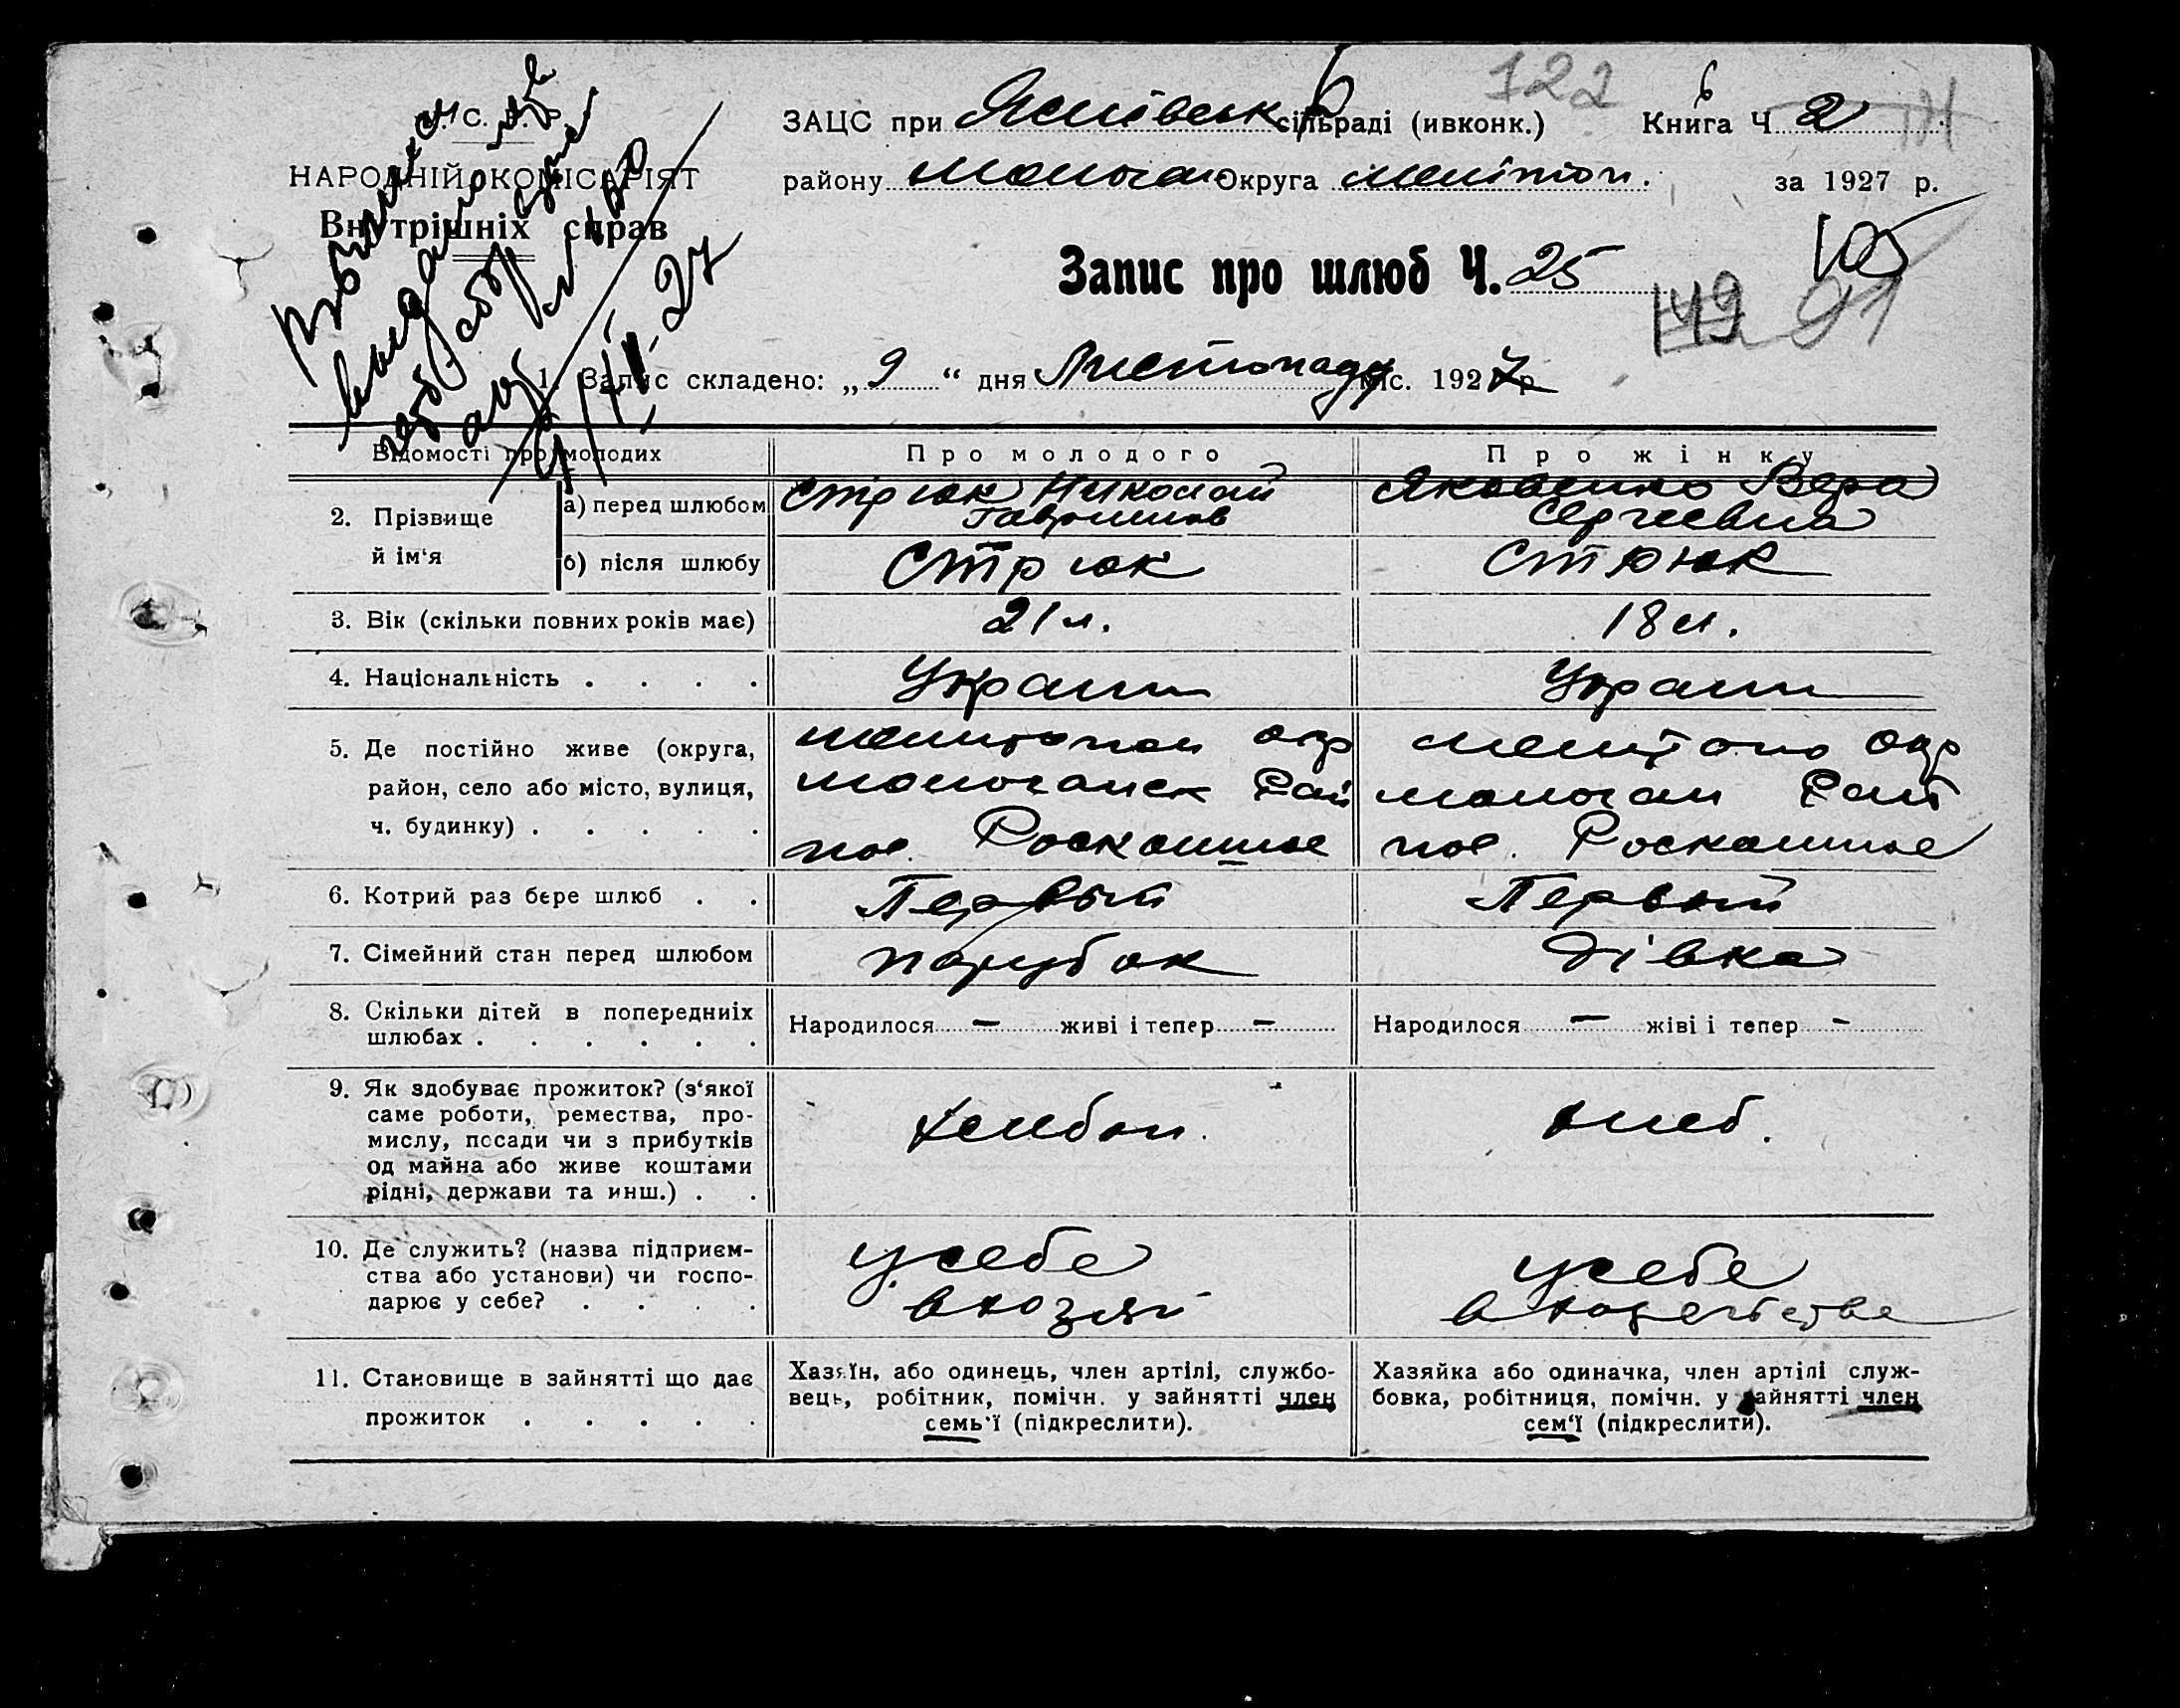 122
ЗАЦС при Яснівськ сільраді (ивконк.) Книга Ч 2
НАРОДНІЙ КОМІСАРІЯТ
району Молочан Округа Мелітоп. за 1927 р.
Внутрішніх справ
Запис про шлюб Ч. 25
105
149 91
9/II-27
1. Запис складено: „ 9 “ дня Листопаду міс. 1927 р
Відомості про молодих
Про молодого
Про жінку
2. Прізвище й ім‘я
а) перед шлюбом
Стрюк Николай
Яковенко Вера
Сергеевна
б) після шлюбу
Стрюк
Стрюк
3. Вік (скільки повних років має)
21 л.
18 л.
4. Національність . . . .
Украин
Украин
5. Де постійно живе (округа,
район, село або місто, вулиця,
ч. будинку) . . . . .
Мелитопол окр
Молочанск Рай
пос. Роскошное
Мелітоп окр
Молочан Рай
пос. Роскошное
6. Котрий раз бере шлюб . .
Первый
Первый
7. Сімейний стан перед шлюбом
парубок
дівка
8. Скільки дітей в попередниіх
шлюбах . . . . . .
Народилося — живі і тепер —
Народилося — жіві і тепер -
9. Як здобуває прожиток? (з‘якої
саме роботи, ремества, про-
мислу, посади чи з прибутків
од майна або живе коштами
рідні, держави та инш.) . .
хлебоп.
хлеб.
10. Де служить? (назва підприєм-
ства або установи) чи госпо-
дарює у себе? . . . .
у себе
в хозяй
у себе
в хозяйстве
11. Становище в зайнятті що дає
прожиток . . . . .
Хазяїн, або одинець, член артілі, службо-
вець, робітник, помічн. у зайнятті член
семь‘ї (підкреслити).
Хазяйка або одиначка, член артілі служ-
бовка, робітниця, помічн. у зайнятті член
сем‘ї (підкреслити).